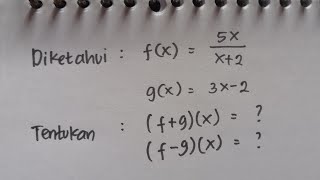 Diketahui : f(x) = 5x/(x+2)
g(x) = 3x-2
Tentukan : (f+g)(x) = ?
(f-g)(x) = ?